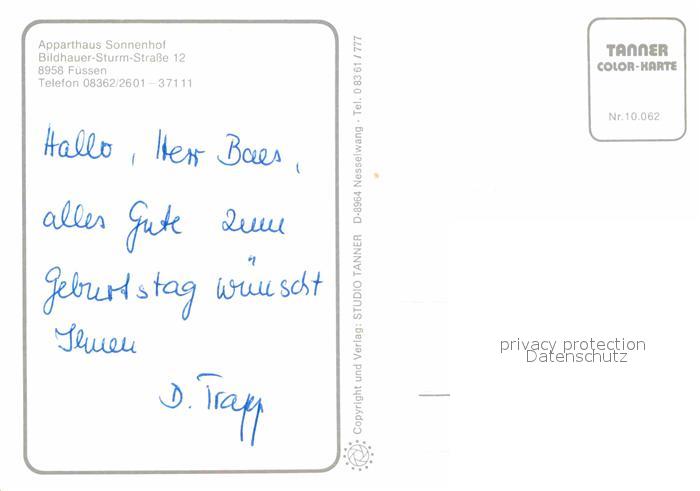 Apparthaus Sonnenhof
Bildhauer-Sturm-Straße 12
8958 Füssen
Telefon 08362/2601 – 37111
Hallo, Herr Baes,
alles Gute zum
Geburtstag wünscht
Ihnen
D. Trapp
Copyright und Verlag: STUDIO TANNER D-8964 Nesselwang · Tel. 08361/777
TANNER
COLOR-KARTE
Nr. 10.062
privacy protection
Datenschutz